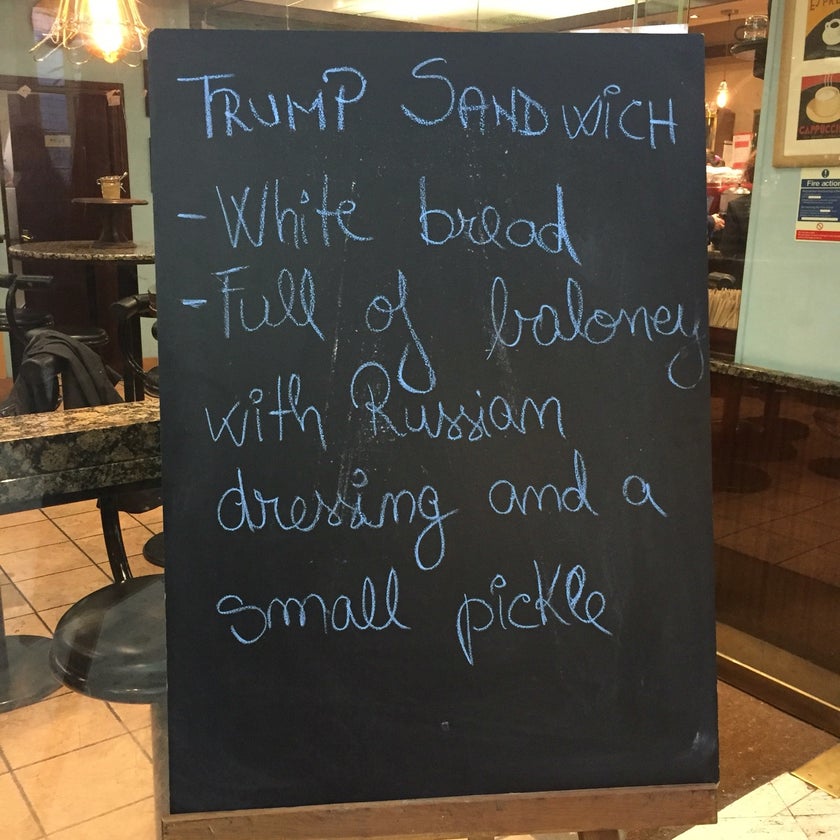 TRUMP SANDWICH
- White bread
- Full of baloney
with Russian
dressing and a
small pickle
Fire action
CAPPUCCI